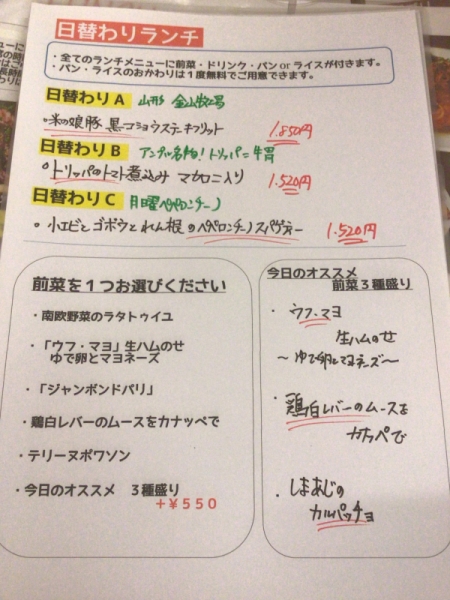 日替わりランチ
・全てのランチメニューに前菜・ドリンク・パンorライスが付きます。
・パン・ライスのおかわりは1度無料でご用意できます。
日替わりA 山形
・米の娘豚 黒コショウステーキフリット 1.850円
日替わりB アンプル名物!トリッパ=牛胃
・トリッパのトマト煮込み マカロニ入り 1.520円
日替わりC 月曜ペペロンチーノ
・小エビとゴボウとれん根のペペロンチーノスパゲティー 1.520円
前菜を1つお選びください
・南欧野菜のラタトゥイユ
・「ウフ・マヨ」生ハムのせ
ゆで卵とマヨネーズ
・「ジャンボンドパリ」
・鶏白レバーのムースをカナッペで
・テリーヌポワソン
・今日のオススメ 3種盛り
+¥550
今日のオススメ
前菜3種盛り
・ウフ・マヨ
生ハムのせ
～ゆで卵とマヨネーズ～
・鶏白レバーのムースを
カナッペで
・しまあじの
カルパッチョ